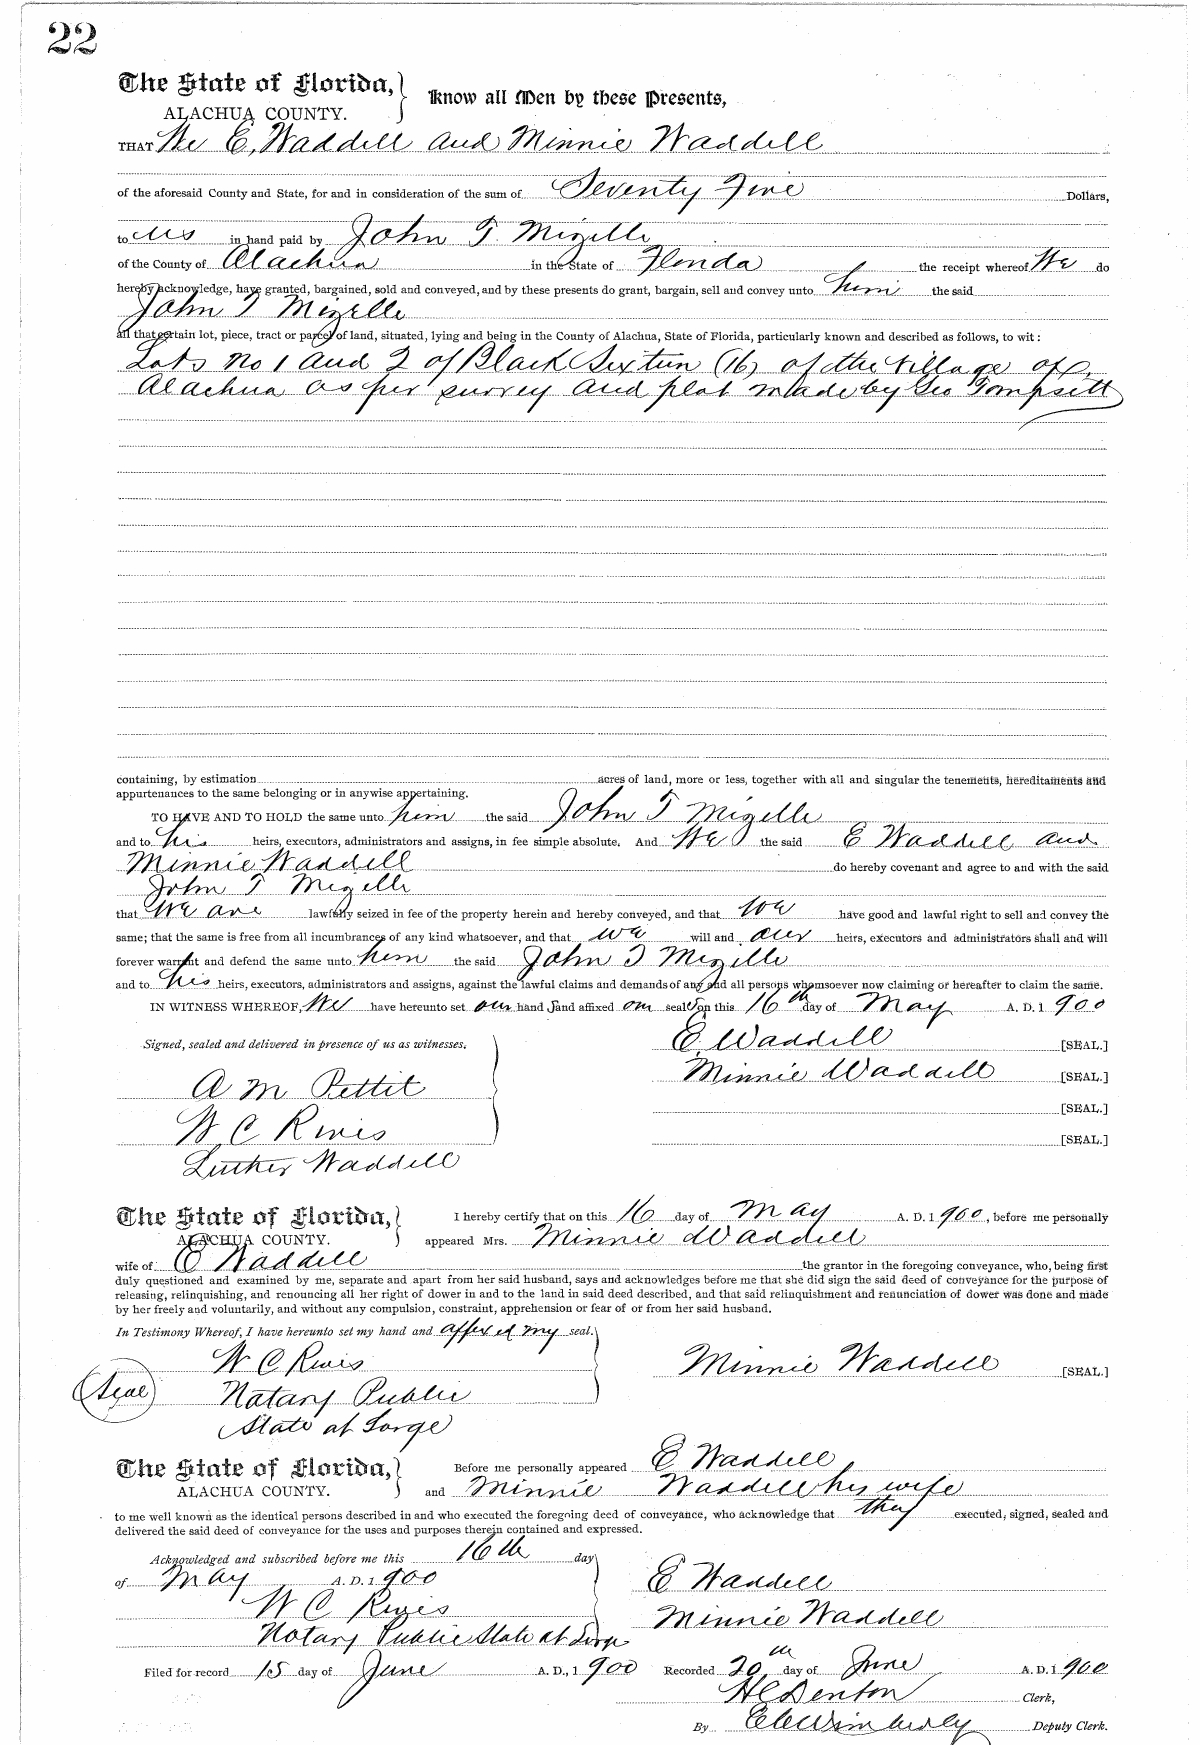 22
The State of Florida,
ALACHUA COUNTY.
Know all Men by these Presents,
THAT We E. Waddell and Minnie Waddell
of the aforesaid County and State, for and in consideration of the sum of Seventy Five Dollars,
to us in hand paid by John T. Mizelle
of the County of Alachua in the State of Florida the receipt whereof We do
hereby acknowledge, have granted, bargained, sold and conveyed, and by these presents do grant, bargain, sell and convey unto him the said
John T Mizelle
all that certain lot, piece, tract or parcel of land, situated, lying and being in the County of Alachua, State of Florida, particularly known and described as follows, to wit:
Lots No 1 and 2 of Block Sixteen (16) of the Village of
Alachua as per survey and plat made by Geo Tompsett
containing, by estimation acres of land, more or less, together with all and singular the tenements, hereditaments and
appurtenances to the same belonging or in anywise appertaining.
TO HAVE AND TO HOLD the same unto him the said John T Mizelle
and to his heirs, executors, administrators and assigns, in fee simple absolute. And We the said E Waddell and
Minnie Waddell do hereby covenant and agree to and with the said
John T Mizelle
that We are lawfully seized in fee of the property herein and hereby conveyed, and that We have good and lawful right to sell and convey the
same; that the same is free from all incumbrances of any kind whatsoever, and that we will and our heirs, executors and administrators shall and will
forever warrant and defend the same unto him the said John T Mizelle
and to his heirs, executors, administrators and assigns, against the lawful claims and demands of any and all persons whomsoever now claiming or hereafter to claim the same.
IN WITNESS WHEREOF, We have hereunto set our hands and affixed our seals on this 16th day of May A. D. 1900
Signed, sealed and delivered in presence of us as witnesses.
E. Waddell [SEAL.]
Minnie Waddell [SEAL.]
A M Pettit
[SEAL.]
W C Rives
[SEAL.]
Luther Waddell
The State of Florida,
ALACHUA COUNTY.
I hereby certify that on this 16 day of May A. D. 1900, before me personally
appeared Mrs. Minnie Waddell
wife of E Waddell the grantor in the foregoing conveyance, who, being first
duly questioned and examined by me, separate and apart from her said husband, says and acknowledges before me that she did sign the said deed of conveyance for the purpose of
releasing, relinquishing, and renouncing all her right of dower in and to the land in said deed described, and that said relinquishment and renunciation of dower was done and made
by her freely and voluntarily, and without any compulsion, constraint, apprehension or fear of or from her said husband.
In Testimony Whereof, I have hereunto set my hand and affixed my seal.
W C Rives
Minnie Waddell [SEAL.]
(Seal)
Notary Public
State at Large
The State of Florida,
ALACHUA COUNTY.
Before me personally appeared E Waddell
and Minnie Waddell his wife
to me well known as the identical persons described in and who executed the foregoing deed of conveyance, who acknowledge that they executed, signed, sealed and
delivered the said deed of conveyance for the uses and purposes therein contained and expressed.
Acknowledged and subscribed before me this 16th day
of May A. D. 1900
E Waddell
W C Rives
Minnie Waddell
Notary Public State at Large
Filed for record 15 day of June A. D., 1900 Recorded 20th day of June A. D. 1900
H C Denton Clerk,
By E C Wimberly Deputy Clerk.